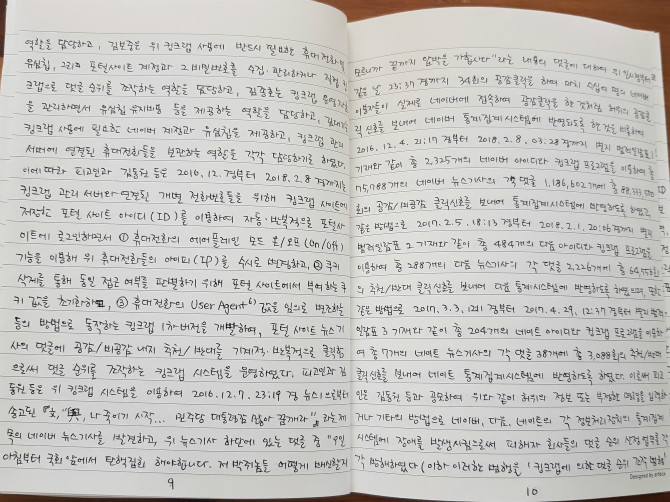 역할을 담당하고, 김보중은 위 킹크랩 사용에 반드시 필요한 휴대전화 및
유심칩, 그리고 포털사이트 계정과 그 비밀번호를 수집·관리하거나 직접 킹
크랩으로 댓글 순위를 조작하는 역할을 담당하고,
을 관리하면서 유심칩 유지비용 등을 제공하는 역할을 담당하고,
킹크랩 사용에 필요한 네이버 계정과 유심칩을 제공하고, 킹크랩 관리
서버에 연결된 휴대전화들을 보관하는 역할을 각각 담당하기로 하였다.
이에 따라 피고인과 김동원 등은 2016. 12.경부터 2018. 2. 8경까지는
킹크랩 관리 서버와 연결된 개별 전화번호들을 위해 킹크랩 사이트에
저장한 포털 사이트 아이디(ID)를 이용하여 자동·반복적으로 포털사
이트에 로그인하면서 ① 휴대전화의 에어플레인 모드 온/오프(On/Off)
기능을 이용해 위 휴대전화들의 아이피(IP)를 수시로 변경하고, ② 쿠키
삭제를 통해 동일 접근 여부를 판별하기 위해 포털 사이트에서 부여하는 쿠
키 값을 초기화하고, ③ 휴대전화의 User Agent 6) 값을 임의로 변조하는
등의 방법으로 동작하는 킹크랩 1차 버전을 개발하여, 포털 사이트 뉴스기
사의 댓글에 공감/비공감 내지 추천/반대를 기계적·반복적으로 클릭함
으로써 댓글 순위를 조작하는 킹크랩 시스템을 운영하였다. 피고인과 김
동원 등은 위 킹크랩 시스템을 이용하여 2016. 12. 7. 23:19경 뉴스1으로부터
송고된 "文, "與, 나 죽이기 시작... 민주당 대통령감 많아 꿈깨라"" 라는 제
목의 네이버 뉴스기사를 발견하고, 위 뉴스기사 하단에 있는 댓글 중 "9일
아침부터 국회 앞에서 탄핵집회 해야합니다. 저 박쥐놈들 어떻게 배신할지
9
모르니까 끝까지 압박을 가합시다" 라는 내용의 댓글에 대하여 위
같은 날 23:37경까지 34회의 공감클릭을 하여 마치 수십 명의 네이버
이용자들이 실제로 네이버에 접속하여 공감클릭을 한 것처럼 허위의 공감클
릭 신호를 보내어 네이버 통계집계시스템에 반영되도록 한 것을 비롯하여
2016. 12. 4. 21:17경부터 2018. 2. 8. 03:28경까지 별지 범죄일람표1
기재와 같이 총 2,325개의 네이버 아이디와 킹크랩 프로그램을 이용하여 총
75,788개의 네이버 뉴스기사의 각 댓글 1,186,602개에 총
회의 공감/비공감 클릭신호를 보내어 통계집계시스템에 반영되도록 하였고,
같은 방법으로 2017. 2. 5. 18:13경부터 2018. 2. 1. 20:06경까지 별지
범죄일람표 2 기재와 같이 총 484개의 다음 아이디와 킹크랩 프로그램을
이용하여 총 288개의 다음 뉴스기사의 각 댓글 2,226개에 총
의 추천/반대 클릭신호를 보내어 다음 통계집계시스템에 반영되도록 하였으며,
같은 방법으로 2017. 3. 3. 경부터 2017. 4. 29. 12:37경까지 별지 범죄
일람표 3 기재와 같이 총 204개의 네이트 아이디와 킹크랩 프로그램을 이용하
여 총 7개의 네이트 뉴스기사의 각 댓글 38개에 총 3,088회의 추천/반대
클릭신호를 보내어 네이트 통계집계시스템에 반영되도록 하였다. 이로써 피고
인은 김동원 등과 공모하여 위와 같이 허위의 정보 또는 부정한 명령을 입력하
거나 기타의 방법으로 네이버, 다음, 네이트의 각 정보처리장치의 통계집계
시스템에 장애를 발생시킴으로써 피해자 회사들의 댓글 순위 산정 업무를
각 방해하였다 (이하 이러한 범행을 '킹크랩에 의한 댓글 순위 조작 범행'
Designed by artbox
10